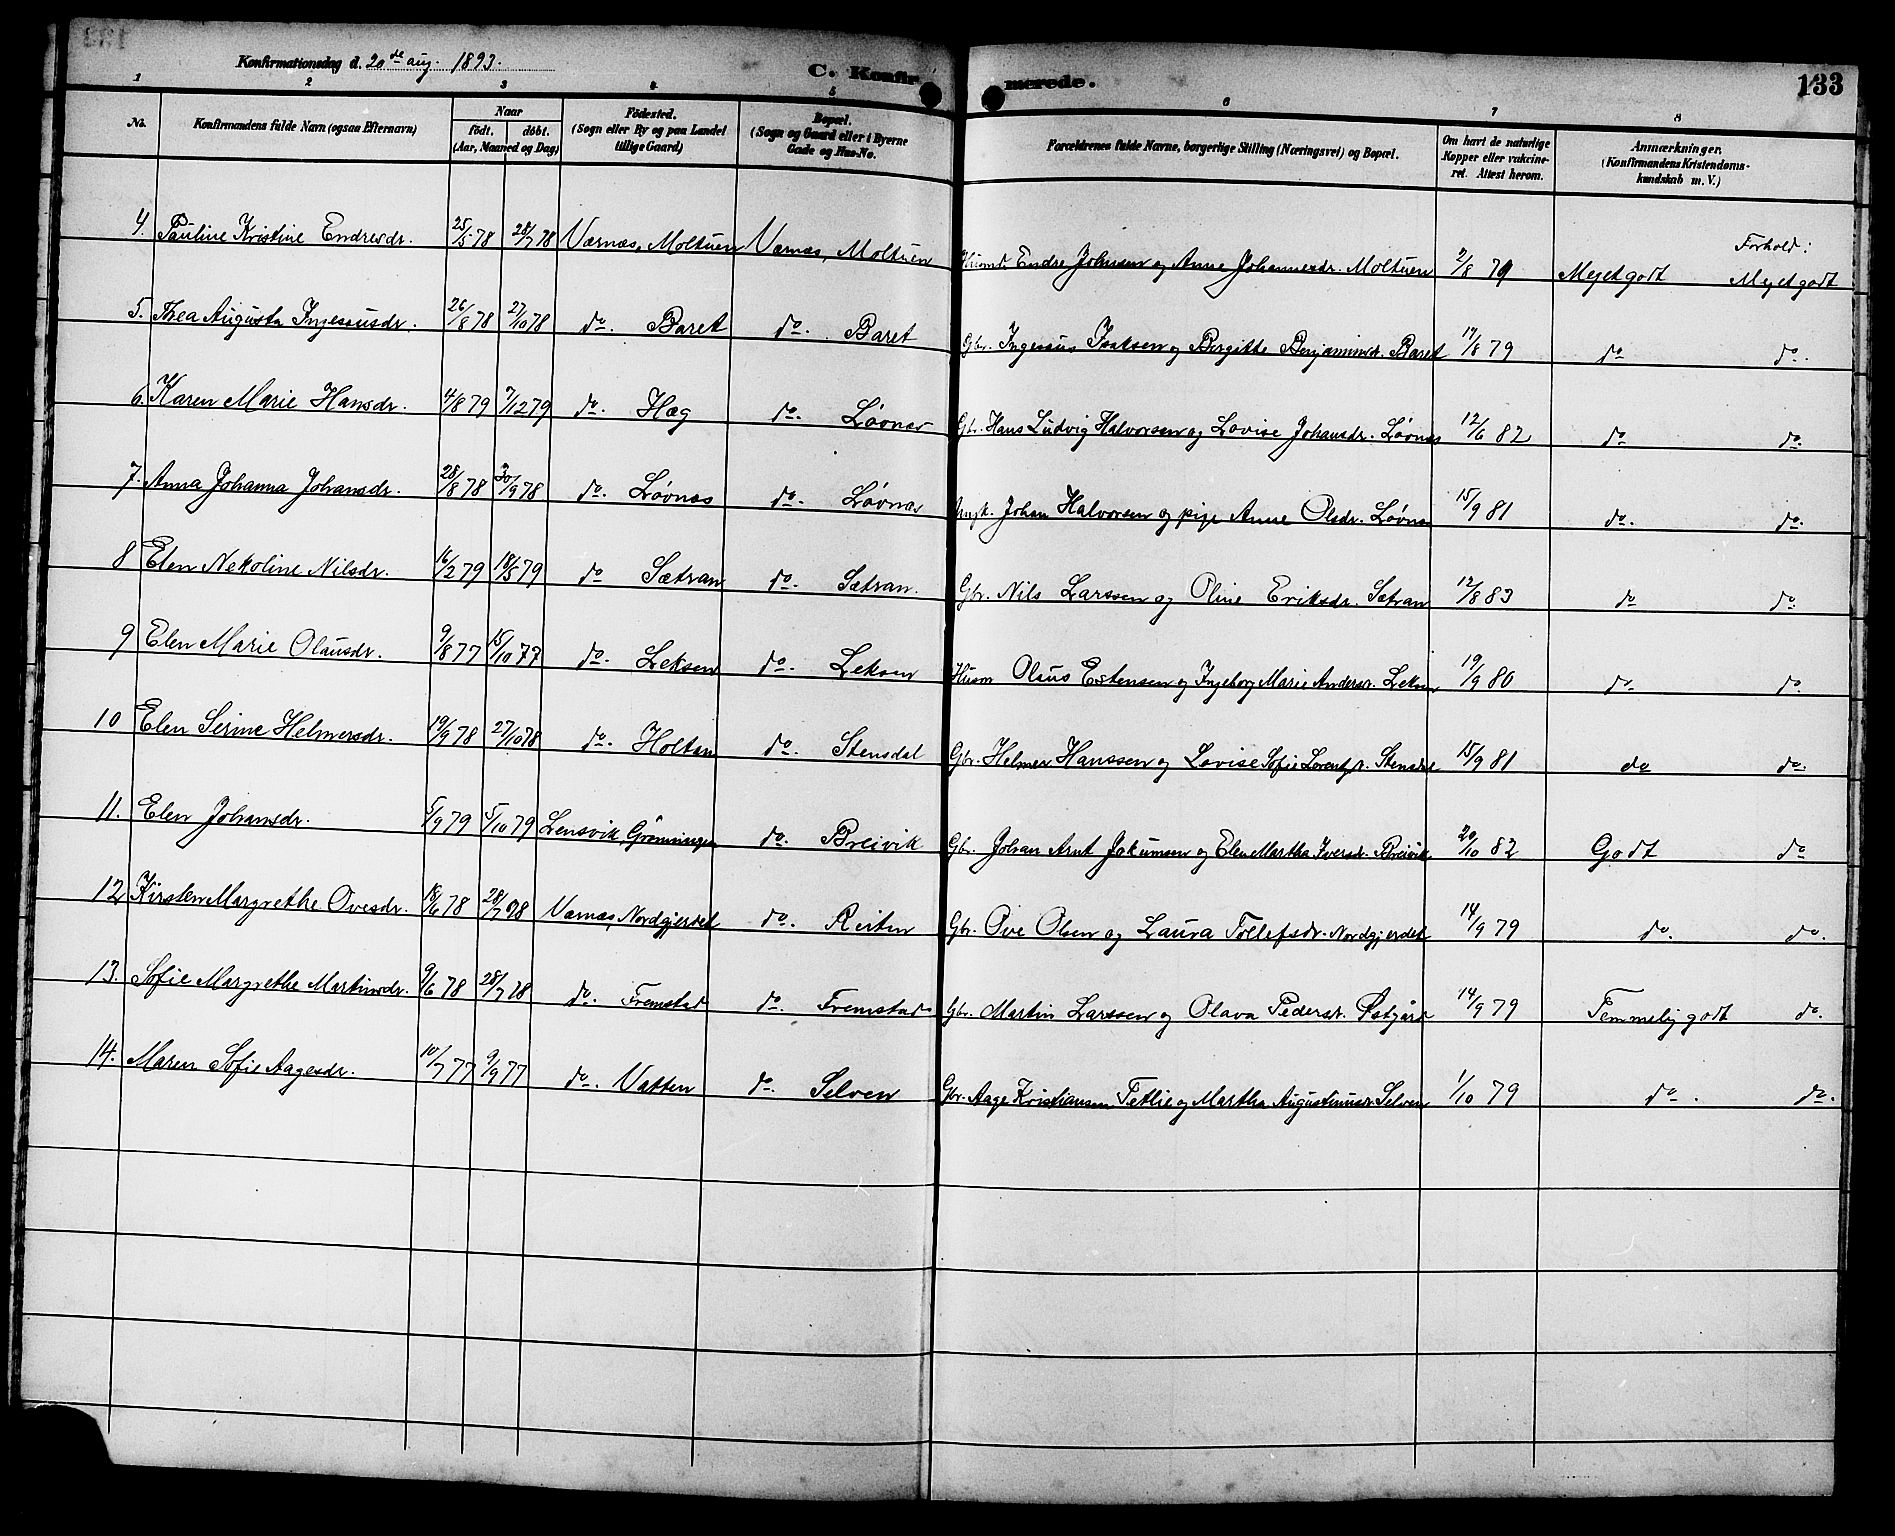 Konfirmationsdag d. 20de aug. 1893.
C. Konfirmerede.
133
1 2 3 4 5 6 7 8
No.
Konfirmandens fulde Navn (ogsaa Efternavn)
Naar
født. døbt.
(Aar, Maaned og Dag)
Fødested.
(Sogn eller By og paa Landet
tillige Gaard)
Bopæl.
(Sogn og Gaard eller i Byerne
Gade og Hus-No.
Forældrenes fulde Navne, borgerlige Stilling (Næringsvei) og Bopæl.
Om havt de naturlige
Kopper eller vakcine-
ret. Attest herom.
Anmærkninger.
(Konfirmandens Kristendoms-
kundskab m. V.)
Forhold:
4. Pauline Kristine Endresdr. 25/5 78 28/7 78 Værnæs, Moltuen Værnæs, Moltuen Husmd. Endre Johnsen og Anne Johannesdr. Moltuen 2/8 79 Meget godt Meget godt
5. Thea Augusta Ingesausdr. 26/8 78 27/10 78 do. Baret do. Baret Gbr. Ingesaus Isaksen og Birgitte Benjaminsdr. Baret 17/8 79 do do.
6. Karen Marie Hansdr. 4/8 79 7/12 79 do. Hæg do. Løvnæs Gbr. Hans Ludvig Halvorsen og Lovise Johansdr. Løvnæs 12/6 82 do do.
7. Anna Johanna Johansdr. 28/8 78 30/9 78 do. Løvnæs do. Løvnæs Ungk. Johan Halvorsen og pige Anne Olsdr. Løvnæs 15/9 81 do. do.
8 Elen Nekoline Nilsdr. 16/2 79 18/5 79 do Sætran do. Sætran. Gbr. Nils Larssen og Oline Eriksdr. Sætran 12/8 83 do do.
9 Elen Marie Olausdr. 9/8 77 15/10 77 do. Leksen do. Leksen Husm Olaus Estensen og Ingeborg Marie Andersdr. Leksen 19/9 80 do. do.
10 Elen Serine Helmersdr. 19/9 78 27/10 78 do. Holtan do. Stensdal Gbr. Helmer Hanssen og Lovise Sofie Lorentsdr. Stensdal 15/9 81 do do.
11. Elen Johansdr. 5/9 79 5/10 79 Lensvik, Grønningen do. Breivik Gbr. Johan Arnt Jakumsen og Elen Martha Iversdr. Breivik 20/10 82 Godt do
12 Kirsten Margrethe Ovesdr. 18/6 78 28/7 78 Værnæs, Nordgjerdet do. Reiten Gbr. Ove Olsen og Laura Tollefsdr. Nordgjerdet 14/9 79 do. do.
13. Sofie Margrethe Martinsdr. 9/6 78 28/7 78 do. Fremstad do. Fremstad Gbr. Martin Larssen og Olava Pedersdr. Østgård 14/9 79 Temmelig godt do.
14. Maren Sofie Aagesdr. 10/7 77 9/9 77 do. Vatten do. Selven Gbr. Aage Kristiansen Tetlie og Martha Augustinusdr. Selven 1/10 79 do. do.